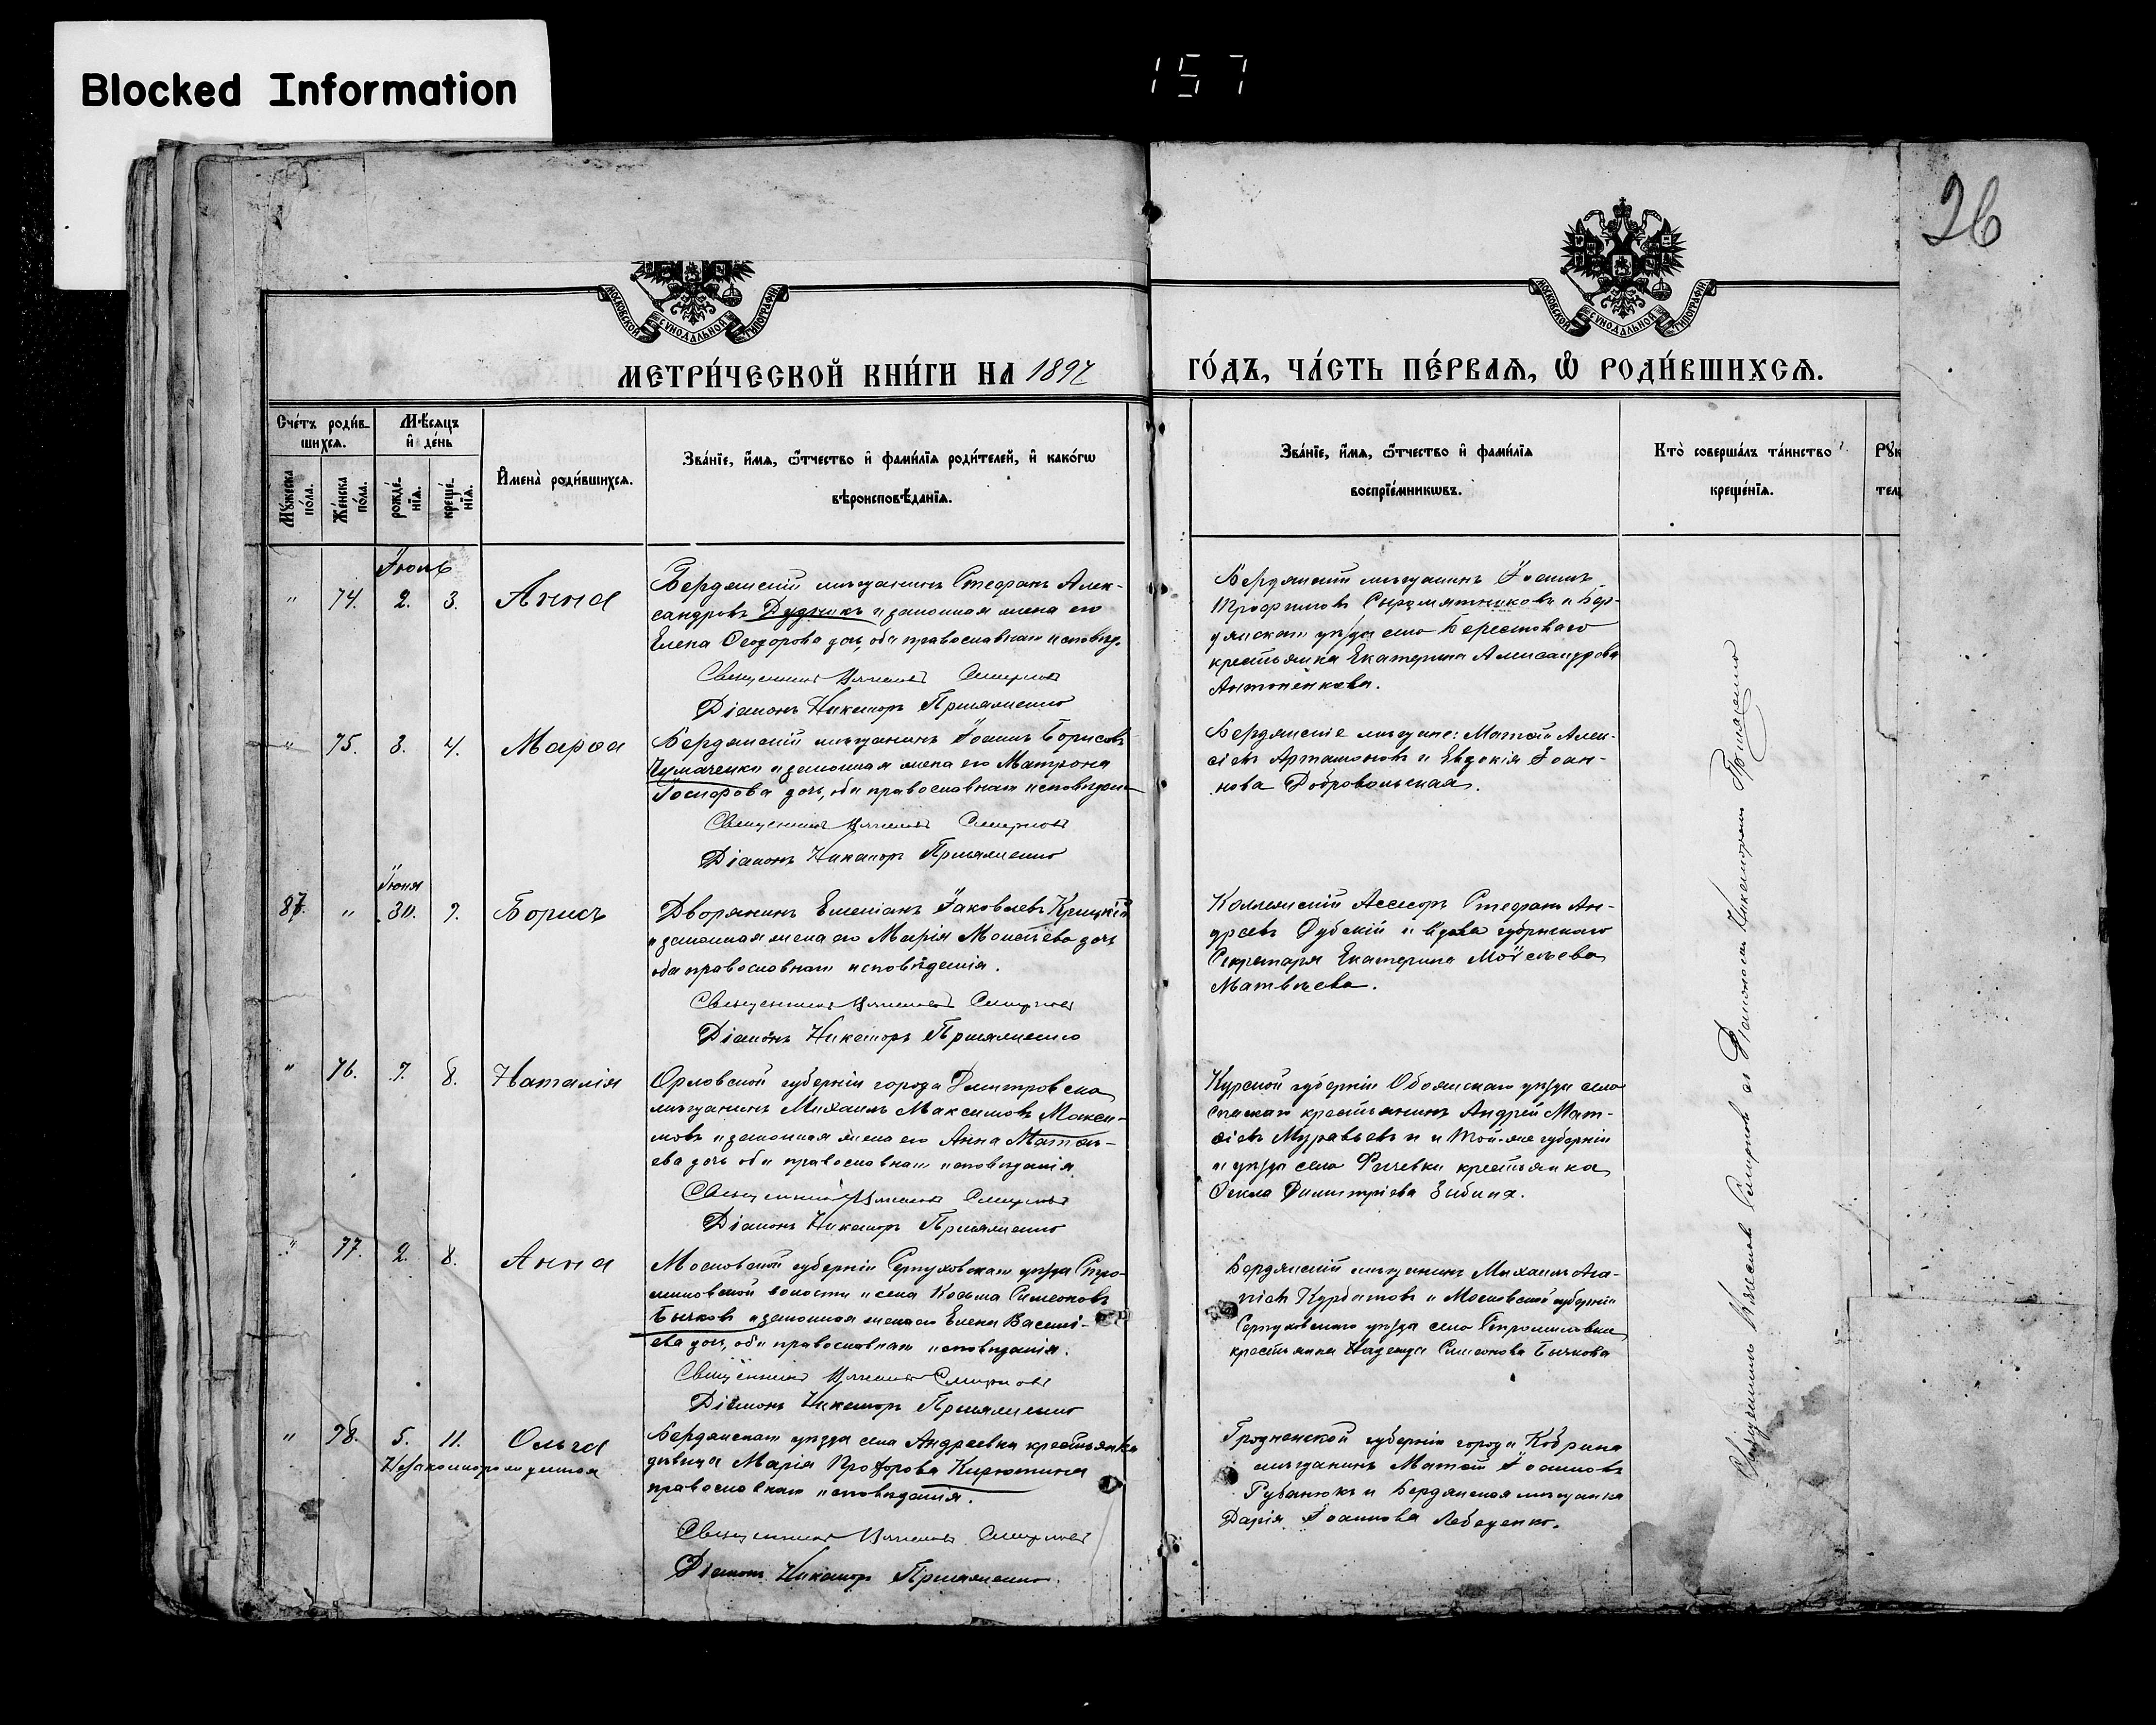 Blocked Information
157
26
МОСКОВСКОЙ СѴНОДАЛЬНОЙ ТИПОГРАФІИ
МОСКОВСКОЙ СѴНОДАЛЬНОЙ ТИПОГРАФІИ
МЕТРИ́ЧЕСКОЙ КНИ́ГИ НА 1897
ГО́ДЪ, ЧА́СТЬ ПЕ́РВАѦ, Ѡ РОДИ́ВШИХСѦ.
Сче́тъ роди́в-
шихсѧ.
Мѣ́сѧцъ
и҆ де́нь
Мꙋ́жеска
по́ла.
Же́нска
по́ла.
рожде́-
нїѧ.
креще́-
нїѧ.
И҆мена̀ роди́вшихсѧ.
Зва́нїе, и҆́мѧ, ѻ҆́тчество и҆ фами́лїѧ роди́телей, и҆ како́гѡ
вѣроисповѣ́данїѧ.
Зва́нїе, и҆́мѧ, ѻ҆́тчество и҆ фами́лїѧ
воспрїе́мникѡвъ.
Кто̀ соверша́лъ та́инство
креще́нїѧ.
Рꙋк
тел
Іюль
" 74. 2. 3. Анна
Бердянскій мѣщанинъ Стефанъ Алек-
сандровъ Дудникъ и законная жена его
Елена Ѳеодорова дочь, оба православнаго исповѣд.
Священникъ Смирновъ
Діаконъ Никаноръ
Бердянскій мѣщанинъ Іоаннъ
Трофимовъ Сыромятниковъ и Бер-
дянскаго уѣзда села Берестоваго
крестьянка Екатерина Александрова
Антоненкова.
" 75. 3. 4. Марѳа
Бердянскій мѣщанинъ Іоаннъ Борисовъ
Чумаченко и законная жена его Матрона
Іосифова дочь, оба православнаго исповѣдан.
Священникъ Смирновъ
Діаконъ Никаноръ
Бердянскіе мѣщане: Матѳій Алек-
сіевъ Артамоновъ и Евдокія Іоан-
нова Добровольская.
Іюня
87. " 30. 7. Борисъ
Дворянинъ Іаковлевъ
и законная жена его Марія Моисѣева дочь
оба православнаго исповѣданія.
Священникъ Смирновъ
Діаконъ Никаноръ
Коллежскій Асессоръ Стефанъ Ан-
дреевъ Дубскій и вдова губернскаго
Секретаря Екатерина Моѵсеева
Матвѣева.
" 76. 7. 8. Наталія
Орловской губерніи города Дмитровска
мѣщанинъ Михаилъ Максимовъ Макси-
мовъ и законная жена его Анна Матѳі-
ева дочь оба православнаго исповѣданія
Священникъ Смирновъ
Діаконъ Никаноръ
Курской губерніи Обоянскаго уѣзда села
крестьянинъ Андрей Мат-
ѳіевъ Муравьевъ и той-же губерніи
и уѣзда села крестьянка
Ѳекла Димитріева Зыбина.
" 77. 2. 8. Анна
Московской губерніи Серпуховскаго уѣзда
волости и села Козьма Симеоновъ
Бычковъ и законная жена его Елена Василі-
ева дочь, оба православнаго исповѣданія.
Священникъ Смирновъ
Діаконъ Никаноръ
Бердянскій мѣщанинъ Михаилъ Ага-
піевъ Курбатовъ и Московской губерніи
Серпуховскаго уѣзда села
крестьянка Надежда Симеонова Бычкова
" 78. 5. 11. Ольга
Незаконнорожденная
Бердянскаго уѣзда села Андреевки крестьянка
дѣвица Марія Прохорова Кирютина
православнаго исповѣданія.
Священникъ Смирновъ
Діаконъ Никаноръ
Гродненской губерніи города Кобрина
мѣщанинъ Матѳій Іоанновъ
Рубанюкъ и Бердянская мѣщанка
Дарія Іоаннова Лебеденко.
Священникъ Смирновъ съ Діакономъ Никаноромъ